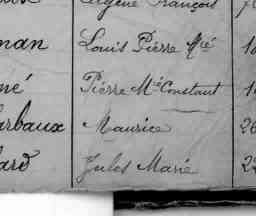 Eugène François
man Louis Pierre Mié 1
né Pierre Mie Constant 1
arbaux Maurice 26
ard Jules Marie 22